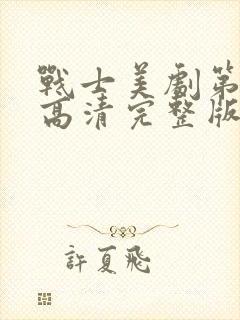 戰士美劇第
高清完整版
許夏飛